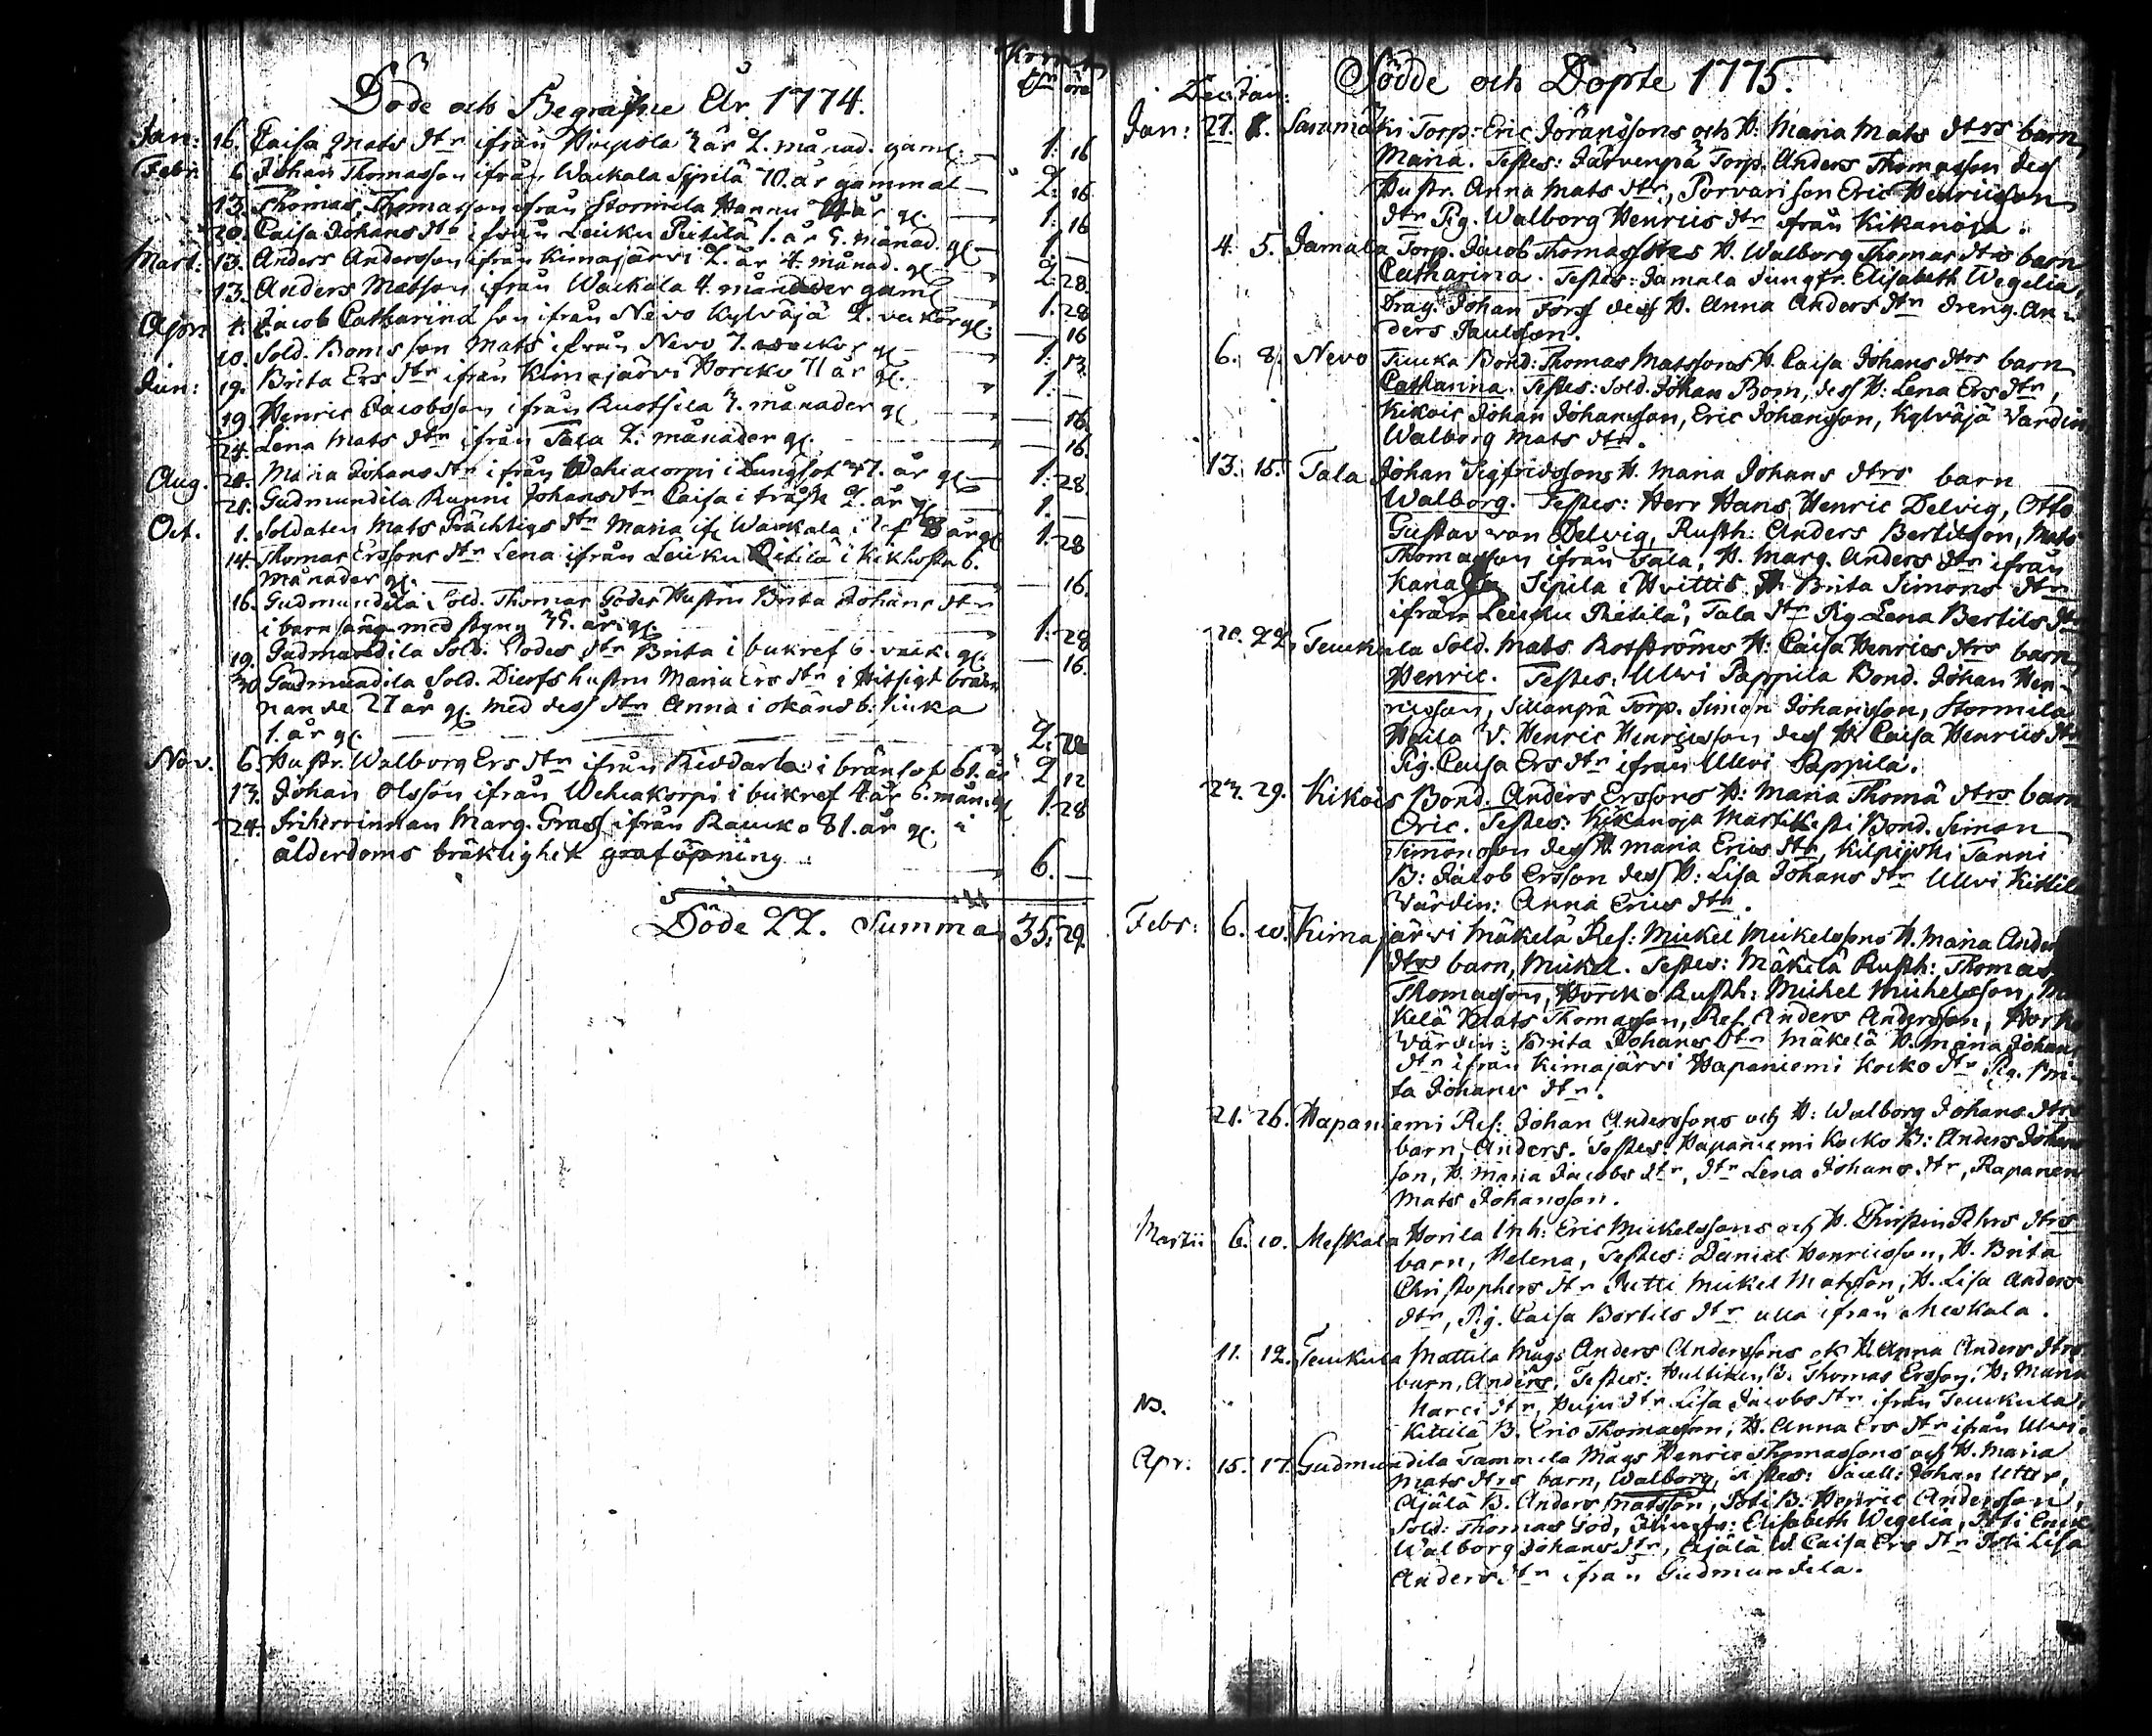 Döde och Begrafne År 1774.
Jan: 16. Caisa Mats dtr ifrån 3 år 2. månad. gaml. 1: 16
Febr. 6. Johan Thomasson ifrån Waekala Sipilä 70. år gammal 2: 16
13. Thomas Thomasson ifrån Stormila Hannu år gl. 1: 16
20. Caisa Johans dtr ifrån Leuku Pietilä 1. år 9. månad. gl 1: —
Mart: 13. Anders Andersson ifrån Kimajärvi 2. år 4. månad. gl 2: 28
13. Anders Matsson ifrån Waekala 4. månader gaml 1: 28
Apr. 4. Jacob Catharinä son ifrån Nevo Kylväjä 2. veckor gl: — 16
10. Sold. Boms son Mats ifrån Nevo 7. veckor gl 1: 13
Jun: 19. Brita Ers dtr ifrån Kimajärvi Horcko 71 år gl. 1: —
19. Henric Jacobsson ifrån Ruotsila 3. månader gl — 16
24. Lena Mats dtr ifrån Tala 2. månader gl. — 16.
Aug. 20. Maria Johans dtr ifrån Wehiacorpi i Lungsot 37. år gl 1: 28
28. Gudmundila Runni Johans dtr Caisa i träsk 2. år gl 1. —
Oct. 1. Soldaten Mats Prächtigs dtr Maria if. Waekala i år gl 1: 28
14. Thomas Erssons dtr Lena ifrån Leuku Pietilä i Kikhosta 6.
månader gl. — 16.
16. Gudmundila Sold. Thomas Godes Hustru Brita Johans dtr
i barnsäng med styng 35. år gl. 1: 28
19. Gudmundila Sold. Godes dtr Brita i bukref 6. veck. gl. — 16.
30 Gudmundila Sold. Dierfs hustru Maria Ers dtr i Hitsigt brän
nande 27 år gl. med dess dtr Anna i okänd b: siuka
1. år gl. 2: 22
Nov. 6. Hustr. Walborg Ers dtr ifrån Riddarla i bränsot 61. år 2 12
13. Johan Olsson ifrån Wehiakorpi i bukref 4 år 6. mån. gl 1: 28
24. Friherrinnan Marg. Grass ifrån Raucko 81. år gl. i
ålderdoms bräklighet graföpning 6. —
Döde 22. Summa 35: 29.
Födde och Döpte 1775.
Dec: Jan:
Jan: 27. 1. Sammäki Torp: Eric Jöranssons och H: Maria Mats dtrs barn,
Maria. Testes: Järvenpä Torp. Anders Thomasson dess
Hustr. Anna Mats dtr, Porvari son Eric Henricsson
dtr Pig. Walborg Henrics dtr ifrån Kikanoja.
4. 5. Jamala Torp. Jacob Thomassons H. Walborg Thomas dtrs barn
Catharina. Testes: Jamala Jungfr. Elisabeth Wegelia,
Drag. Johan Fors dess H. Anna Anders dtr dreng. An
ders Paulsson.
6. 8. Nevo Teucka Bond: Thomas Matssons H. Caisa Johans dtrs barn
Catharina. Testes: Sold. Johan Bom, dess H: Lena Ers dtr,
Kikois Johan Johansson, Eric Johansson, Kylväjä Värdin
Walborg Mats dtr.
13. 15. Tala Johan Sigfridssons H. Maria Johans dtrs barn
Walborg. Testes: Herr Hans Henric Delvig, Otto
Gustav von Delvig, Rusth: Anders Bertilsson, Mats
Thomasson ifrån Tala, H. Marg. Anders dtr ifrån
Sipila i Hvittis H. Brita Simons dtr
ifrån Leuku Pietilä, Tala dtr Pig. Lena Bertils dtr
20. 22. Teuckula Sold. Mats Rotströms H: Caisa Henrics dtrs barn,
Henric. Testes: Ulvi Pappila Bond. Johan Hen-
ricsson, Sillanpä Torp. Simon Johansson, Stormila
Heila V. Henric Henricsson dess H. Caisa Henrics dtr
Pig. Caisa Ers dtr ifrån Ulvi Pappila.
23. 29. Kikois Bond. Anders Erssons H: Maria Thomä dtrs barn
Eric. Testes: Kikanoja Bond. Simon
Simonsson dess H. Maria Erics dtr, Kilpijoki Tanni
B: Jacob Ersson dess H: Lisa Johans dtr Ulvi Kittilä
Värdin: Anna Erics dtr.
Febr: 6. 10. Kimajärvi Mäkelä Ref: Mickel Mickelssons H. Maria Anders
dtrs barn, Mickel. Testes: Mäkelä Rusth: Thomas
Thomasson, Horcko Rusth: Michel Michelsson, Mä
kelä Mats Thomasson, Ref. Anders Andersson, Horko
Värdin: Brita Johans dtr Mäkelä H. Maria Johans
dtr ifrån Kimajärvi Hapaniemi Kocko dtr Pig. Bri-
ta Johans dtr.
21. 26. Hapaniemi Ref: Johan Anderssons och H: Walborg Johans dtrs
barn, Anders. Testes: Hapaniemi Kocko B: Anders Johans
son, H. Maria Jacobs dtr, dtr Lena Johans dtr, Rapanen
Mats Johansson.
Martii 6. 10. Meskala Horila Inh: Eric Mickelssons och H. Christin Pehrs dtrs
barn, Helena, Testes: Daniel Henricsson, H. Brita
Christophers dtr Jutti Mickel Matsson, H. Lisa Anders
dtr, Pig. Caisa Bertils dtr alla ifrån Meskala.
11. 12. Teuckula Mattila Mågs Anders Anderssons ok H Anna Anders dtrs
barn, Anders, Testes: B. Thomas Ersson, H. Maria
Marci dtr, dtr Lisa Jacobs dtr ifrån Teuckula,
Kittilä B. Eric Thomasson, H. Anna Ers dtr ifrån Ulvi.
Apr: 15. 17. Gudmundila Tammela Mågs Henric Thomassons och H. Maria
Mats dtrs barn, Walborg, Testes: Sacell: Johan Utter,
Äjälä B. Anders Matsson, Isti B. Henric Andersson,
Sold: Thomas God, Jungfr: Elisabeth Wegelia, Isti
Walborg Johans dtr, Äjälä W. Caisa Ers dtr Isti Lisa
Anders dtr ifrån Gudmundila.